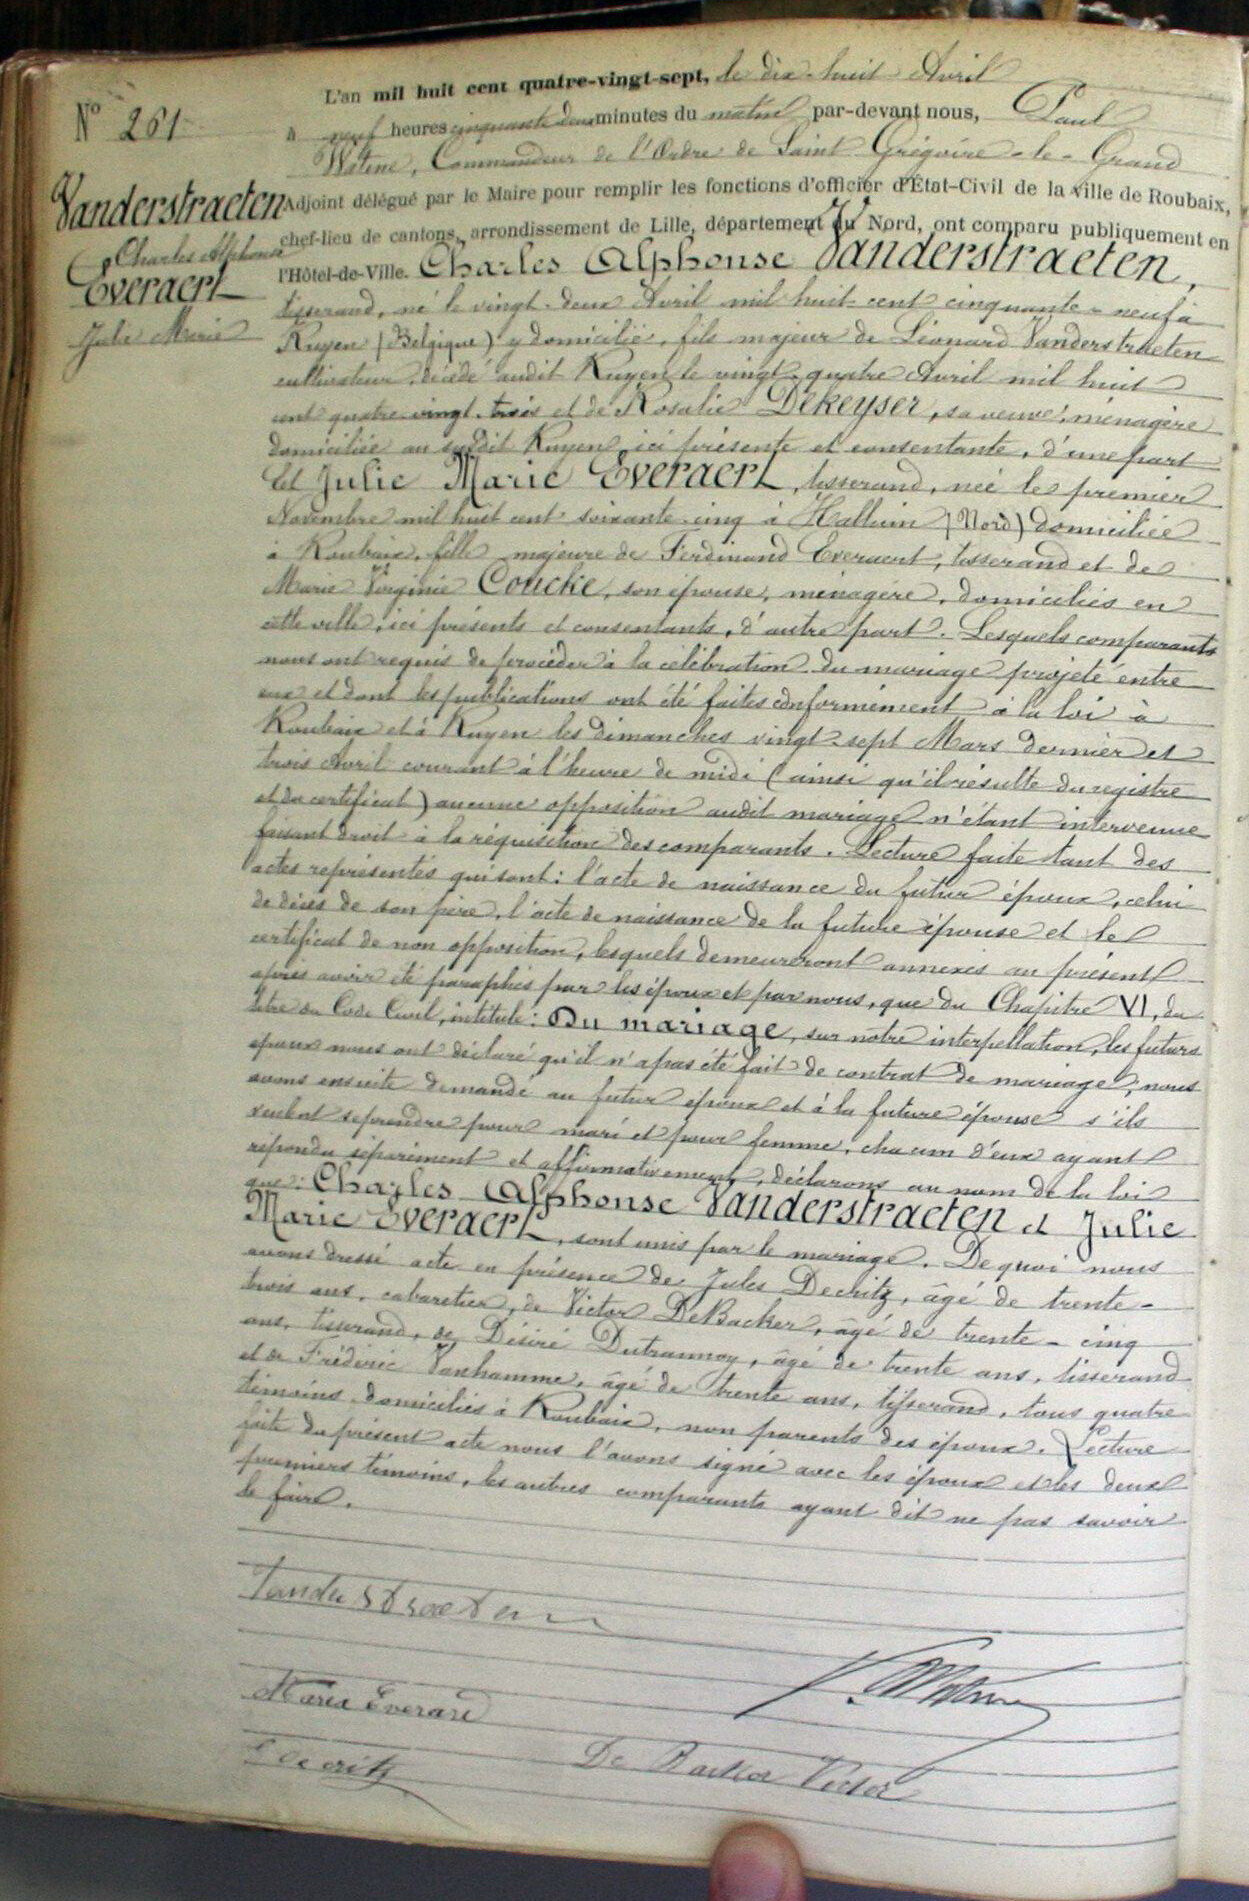 L'an mil huit cent quatre-vingt-sept, le dix-huit Avril
N° 261
à neuf heures cinquante deux minutes du matin par-devant nous, Paul
Watine, Commandeur de l'Ordre de Saint Grégoire-le-Grand
Vanderstraeten
Adjoint délégué par le Maire pour remplir les fonctions d'officier d'État-Civil de la ville de Roubaix,
Charles Alphonse
chef-lieu de cantons, arrondissement de Lille, département du Nord, ont comparu publiquement en
Everaert
l'Hôtel-de-Ville. Charles Alphonse Vanderstraeten,
Julie Marie
tisserand, né le vingt-deux Avril mil huit cent cinquante-neuf à
Ruyen (Belgique) y domicilié, fils majeur de Léonard Vanderstraeten
cultivateur, décédé audit Ruyen le vingt-quatre Avril mil huit
cent quatre-vingt-trois et de Rosalie Dekeyser, sa veuve, ménagère
domiciliée au susdit Ruyen, ici présente et consentante, d'une part
Et Julie Marie Everaert, tisserand, née le premier
Novembre mil huit cent soixante-cinq à Halluin (Nord) domiciliée
à Roubaix, fille majeure de Ferdinand Everaert, tisserand et de
Marie Virginie Coucke, son épouse, ménagère, domiciliés en
cette ville, ici présents et consentants, d'autre part. Lesquels comparants
nous ont requis de procéder à la célébration du mariage projeté entre
eux et dont les publications ont été faites conformément à la loi à
Roubaix et à Ruyen les dimanches vingt-sept Mars dernier et
trois Avril courant à l'heure de midi (ainsi qu'il résulte du registre
et du certificat) aucune opposition audit mariage n'étant intervenue
faisant droit à la réquisition des comparants. Lecture faite tant des
actes représentés qui sont: l'acte de naissance du futur époux, celui
de décès de son père, l'acte de naissance de la future épouse et le
certificat de non opposition, lesquels demeureront annexés au présent
après avoir été paraphés par les époux et par nous, que du Chapitre VI, du
titre du Code Civil, intitulé: Du mariage, sur notre interpellation, les futurs
époux nous ont déclaré qu'il n'a pas été fait de contrat de mariage, nous
avons ensuite demandé au futur époux et à la future épouse s'ils
veulent se prendre pour mari et pour femme, chacun d'eux ayant
répondu séparément et affirmativement, déclarons au nom de la loi
que: Charles Alphonse Vanderstraeten et Julie
Marie Everaert, sont unis par le mariage. De quoi nous
avons dressé acte en présence de Jules Dechitz, âgé de trente-
trois ans, cabaretier, de Victor DeBacker, âgé de trente-cinq
ans, tisserand, de Désiré Dutrannoy, âgé de trente ans, tisserand
et de Frédéric Vanhamme, âgé de trente ans, tisserand, tous quatre
témoins domiciliés à Roubaix, non parents des époux. Lecture
faite du présent acte nous l'avons signé avec les époux et les deux
premiers témoins, les autres comparants ayant dit ne pas savoir
le faire.
Vanderstraeten
Maria Everard
De Backer Victor